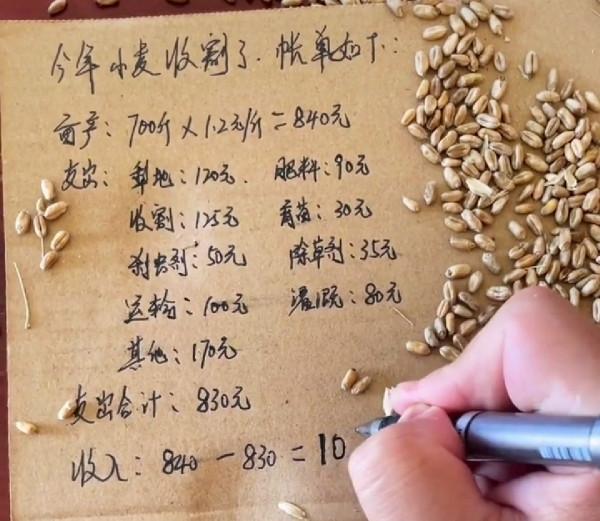 今年小麦收割了.帐单如下:
亩产:700斤×1.2元/斤=840元
支出:犁地:120元. 肥料:90元
收割:125元 育苗:30元
杀虫剂:50元 除草剂:35元
运输:100元 灌溉:80元
其他:170元
支出合计:830元
收入:840-830=10